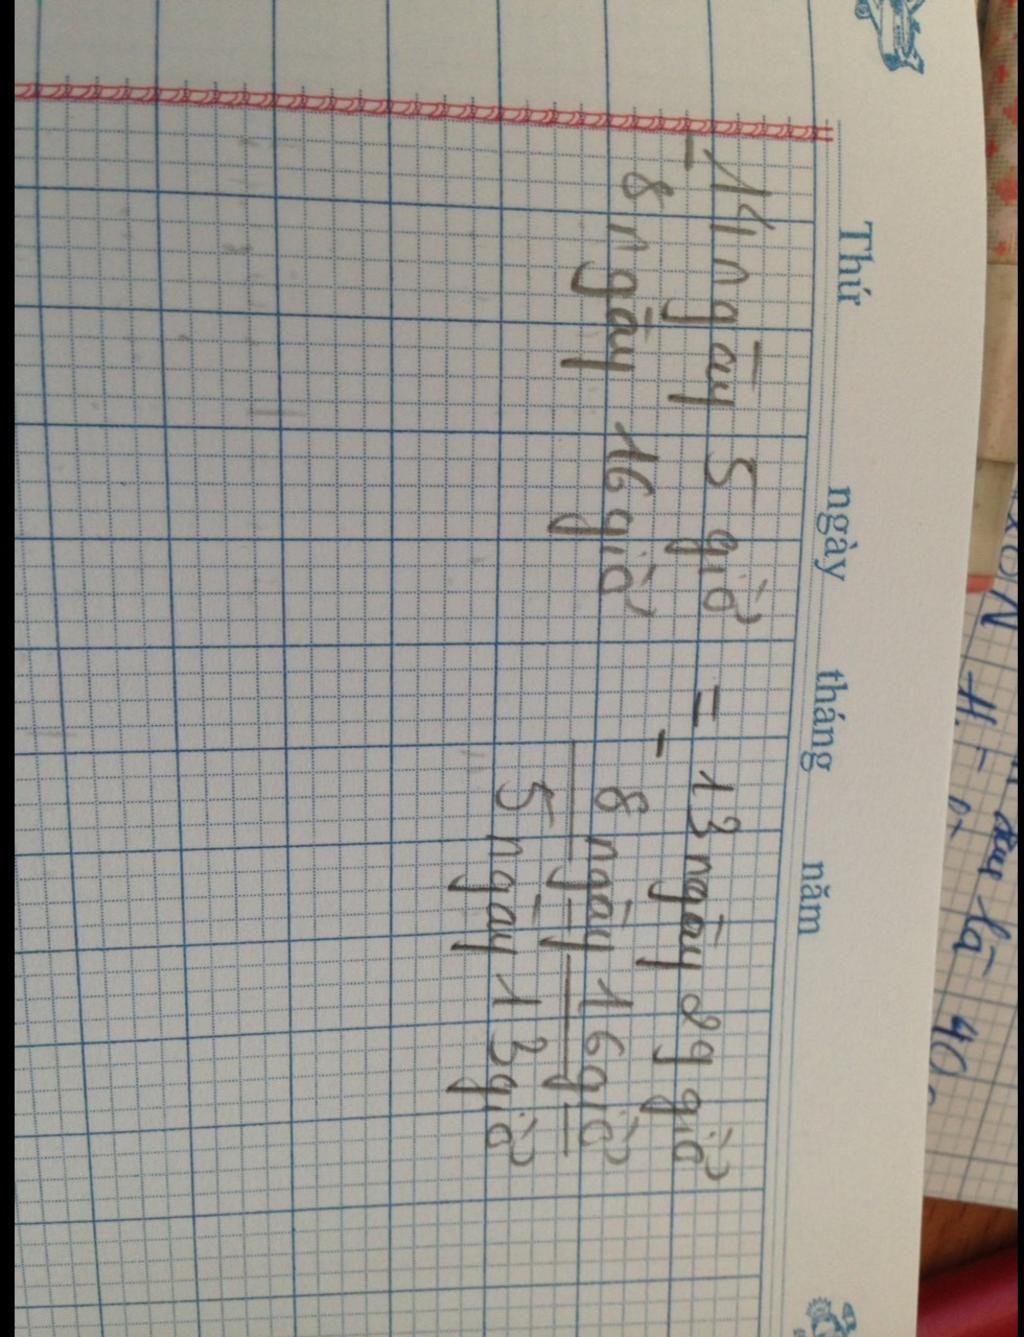 Thứ ngày tháng năm
14 ngày 5 giờ = 13 ngày 29 giờ
- -
8 ngày 16 giờ 8 ngày 16 giờ
5 ngày 13 giờ
là 40